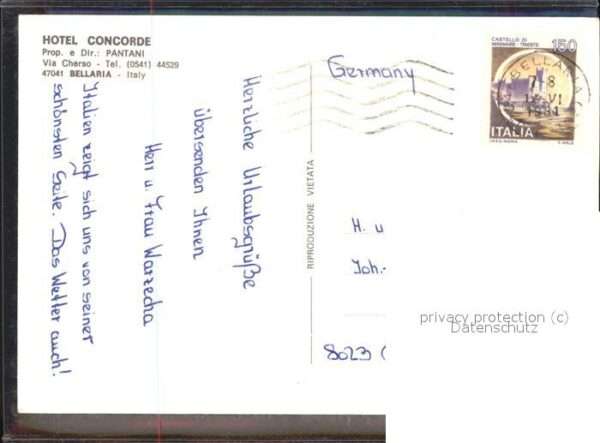 HOTEL CONCORDE
Prop. e Dir.: PANTANI
Via Charso - Tel. (0541) 44529
47041 BELLARIA - Italy
Herzliche Urlaubsgrüße
übersenden Ihnen
Herr u. Frau Warzecha
Italien zeigt sich uns von seiner
schönsten Seite. Das Wetter auch!
RIPRODUZIONE VIETATA
Germany
CASTELLO DI
MIRAMARE - TRIESTE
150
ITALIA
BELLARIA
7-8
VI
H. u
Joh.-
8023 (
privacy protection (c)
Datenschutz